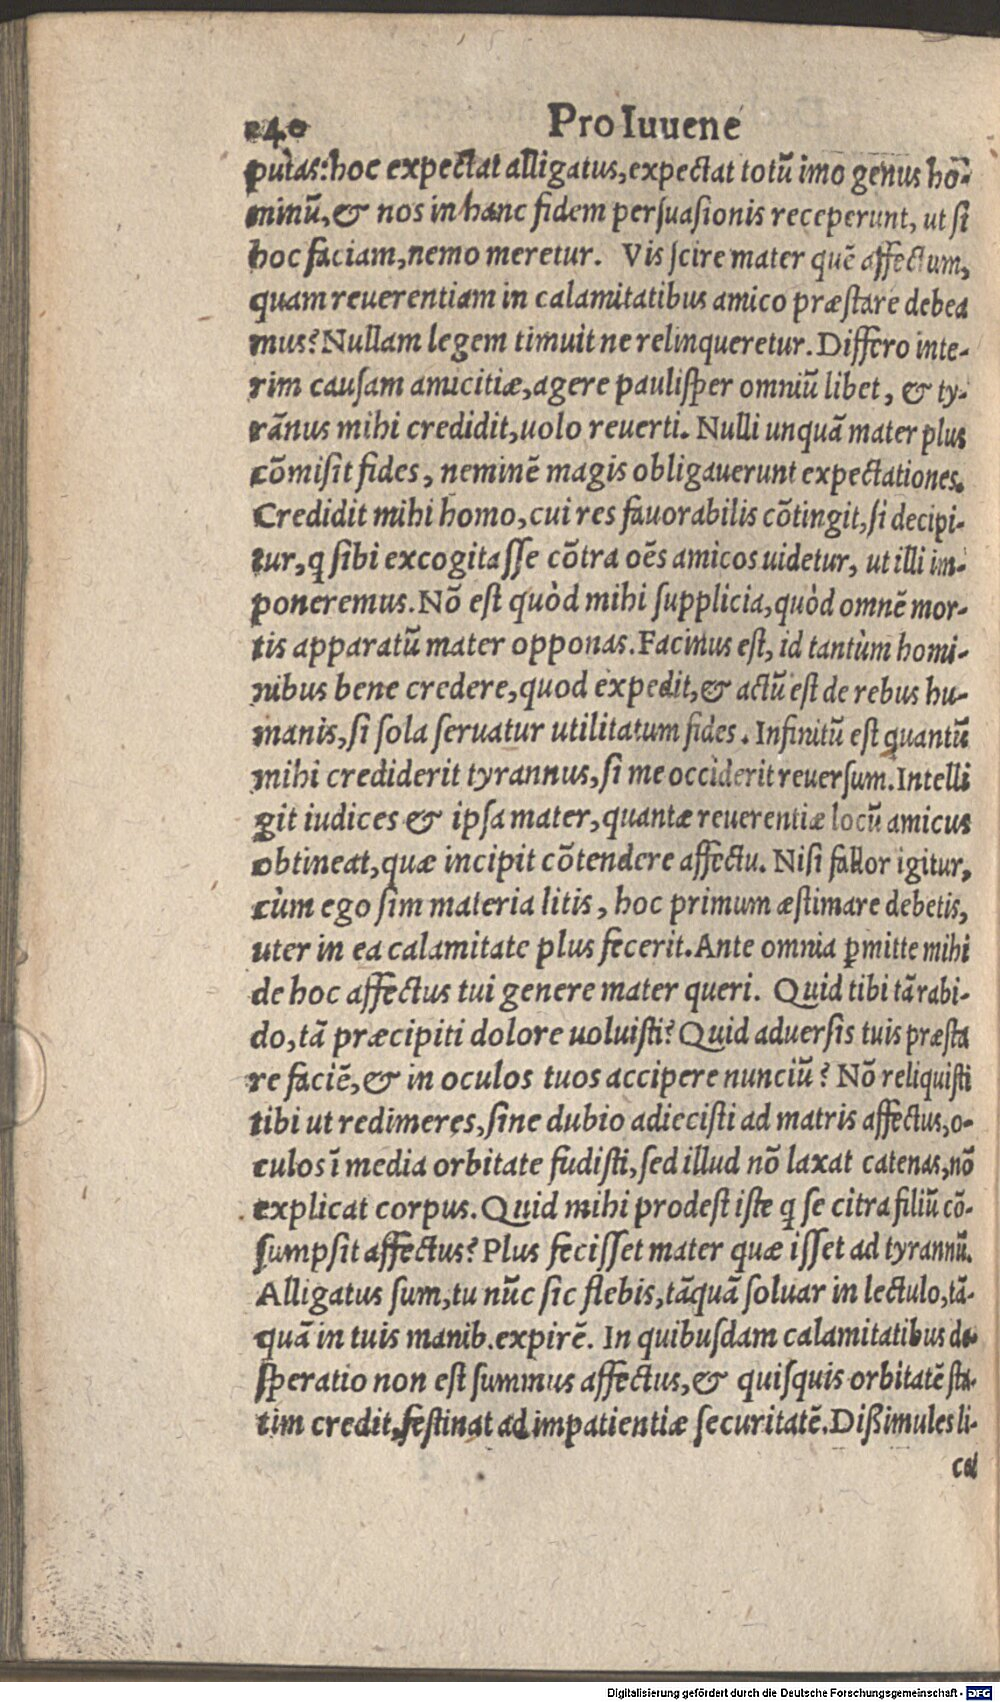 240 Pro Iuuene
putas: hoc expectat alligatus, expectat totũ imo genus hõ-
minũ, & nos in hanc fidem persuasionis receperunt, ut si
hoc faciam, nemo meretur. Vis scire mater quẽ affectum,
quam reuerentiam in calamitatibus amico præstare debea
mus? Nullam legem timuit ne relinqueretur. Differo inte-
rim causam amicitiæ, agere paulisper omniũ libet, & ty-
rãnus mihi credidit, uolo reuerti. Nulli unquã mater plus
cõmisit fides, neminẽ magis obligauerunt expectationes.
Credidit mihi homo, cui res fauorabilis cõtingit, si decipi-
tur, q sibi excogitasse cõtra oẽs amicos uidetur, ut illi im-
poneremus. Nõ est quòd mihi supplicia, quòd omnẽ mor-
tis apparatũ mater opponas. Facinus est, id tantùm homi-
nibus bene credere, quod expedit, & actũ est de rebus hu-
manis, si sola seruatur utilitatum fides. Infinitũ est quantũ
mihi crediderit tyrannus, si me occiderit reuersum. Intelli
git iudices & ipsa mater, quantæ reuerentiæ locũ amicus
obtineat, quæ incipit cõtendere affectu. Nisi fallor igitur,
cùm ego sim materia litis, hoc primum æstimare debetis,
uter in ea calamitate plus fecerit. Ante omnia p̱mitte mihi
de hoc affectus tui genere mater queri. Quid tibi tã rabi-
do, tã præcipiti dolore uoluisti? Quid aduersis tuis præsta
re faciẽ, & in oculos tuos accipere nunciũ? Nõ reliquisti
tibi ut redimeres, sine dubio adiecisti ad matris affectus, o-
culos ĩ media orbitate fudisti, sed illud nõ laxat catenas, nõ
explicat corpus. Quid mihi prodest iste q se citra filiũ cõ-
sumpsit affectus? Plus fecisset mater quæ isset ad tyrannũ.
Alligatus sum, tu nũc sic flebis, tãquã soluar in lectulo, tã-
quã in tuis manib. expirẽ. In quibusdam calamitatibus de-
speratio non est summus affectus, & quisquis orbitatẽ sta-
tim credit, festinat ad impatientiæ securitatẽ. Dißimules li-
cet
Digitalisierung gefördert durch die Deutsche Forschungsgemeinschaft - DFG